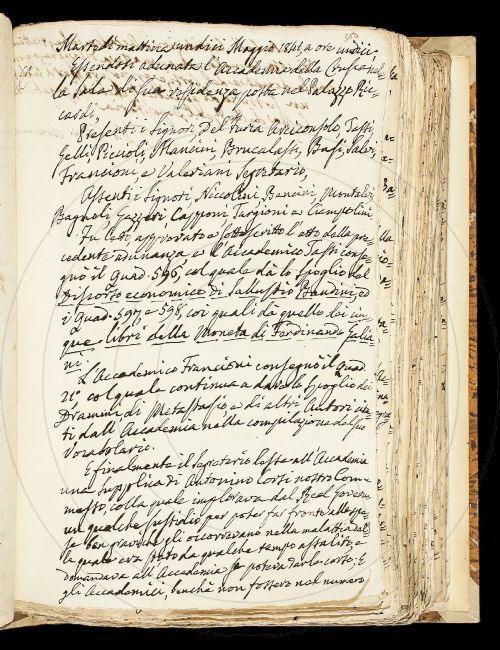 Martedì mattina undici Maggio 1841, a ore undici
Essendosi adunata l'Accademia della Crusca nel-
la Sala di sua residenza posta nel Palazzo Ric-
cardi.
Presenti i Signori Del Furia Arciconsolo, Tassi,
Gelli, Piccioli, Mancini, Brucalassi, Basi, Salvi,
Francioni, e Valeriani Segretario,
Assenti i Signori, Niccolini, Bencini, Montalvi,
Bagnoli, Gazzeri, Capponi, Targioni e Ciampolini,
Fu letto approvato e sottoscritto l'atto della pre-
cedente adunanza e l'Accademico Tassi conse-
gnò il Quad. 596, col quale dà lo spoglio del
Discorso economico di Sallustio Bandini, ed
i Quad. 597, e 598, coi quali dà quello dei cin-
que libri della Moneta di Ferdinando Galia-
ni.
L'Accademico Francioni consegnò il Quad.
21° col quale continua a dare lo Spoglio dei
Drammi di Metastasio e di altri Autori cita-
ti dall'Accademia nella compilazione del suo
Vocabolario.
E finalmente il Segretario lesse all'Accademia
una Supplica di Antonino Corti nostro Com-
messo, colla quale implorava dal Real Governo
un qualche sussidio per poter far fronte alle spe-
se ben gravi che gli occorrevano nella malattia dal-
la quale era stato da qualche tempo assalito, e
domandava all'Accademia se poteva darle corso; E
gli Accademici, benchè non fossero nel numero